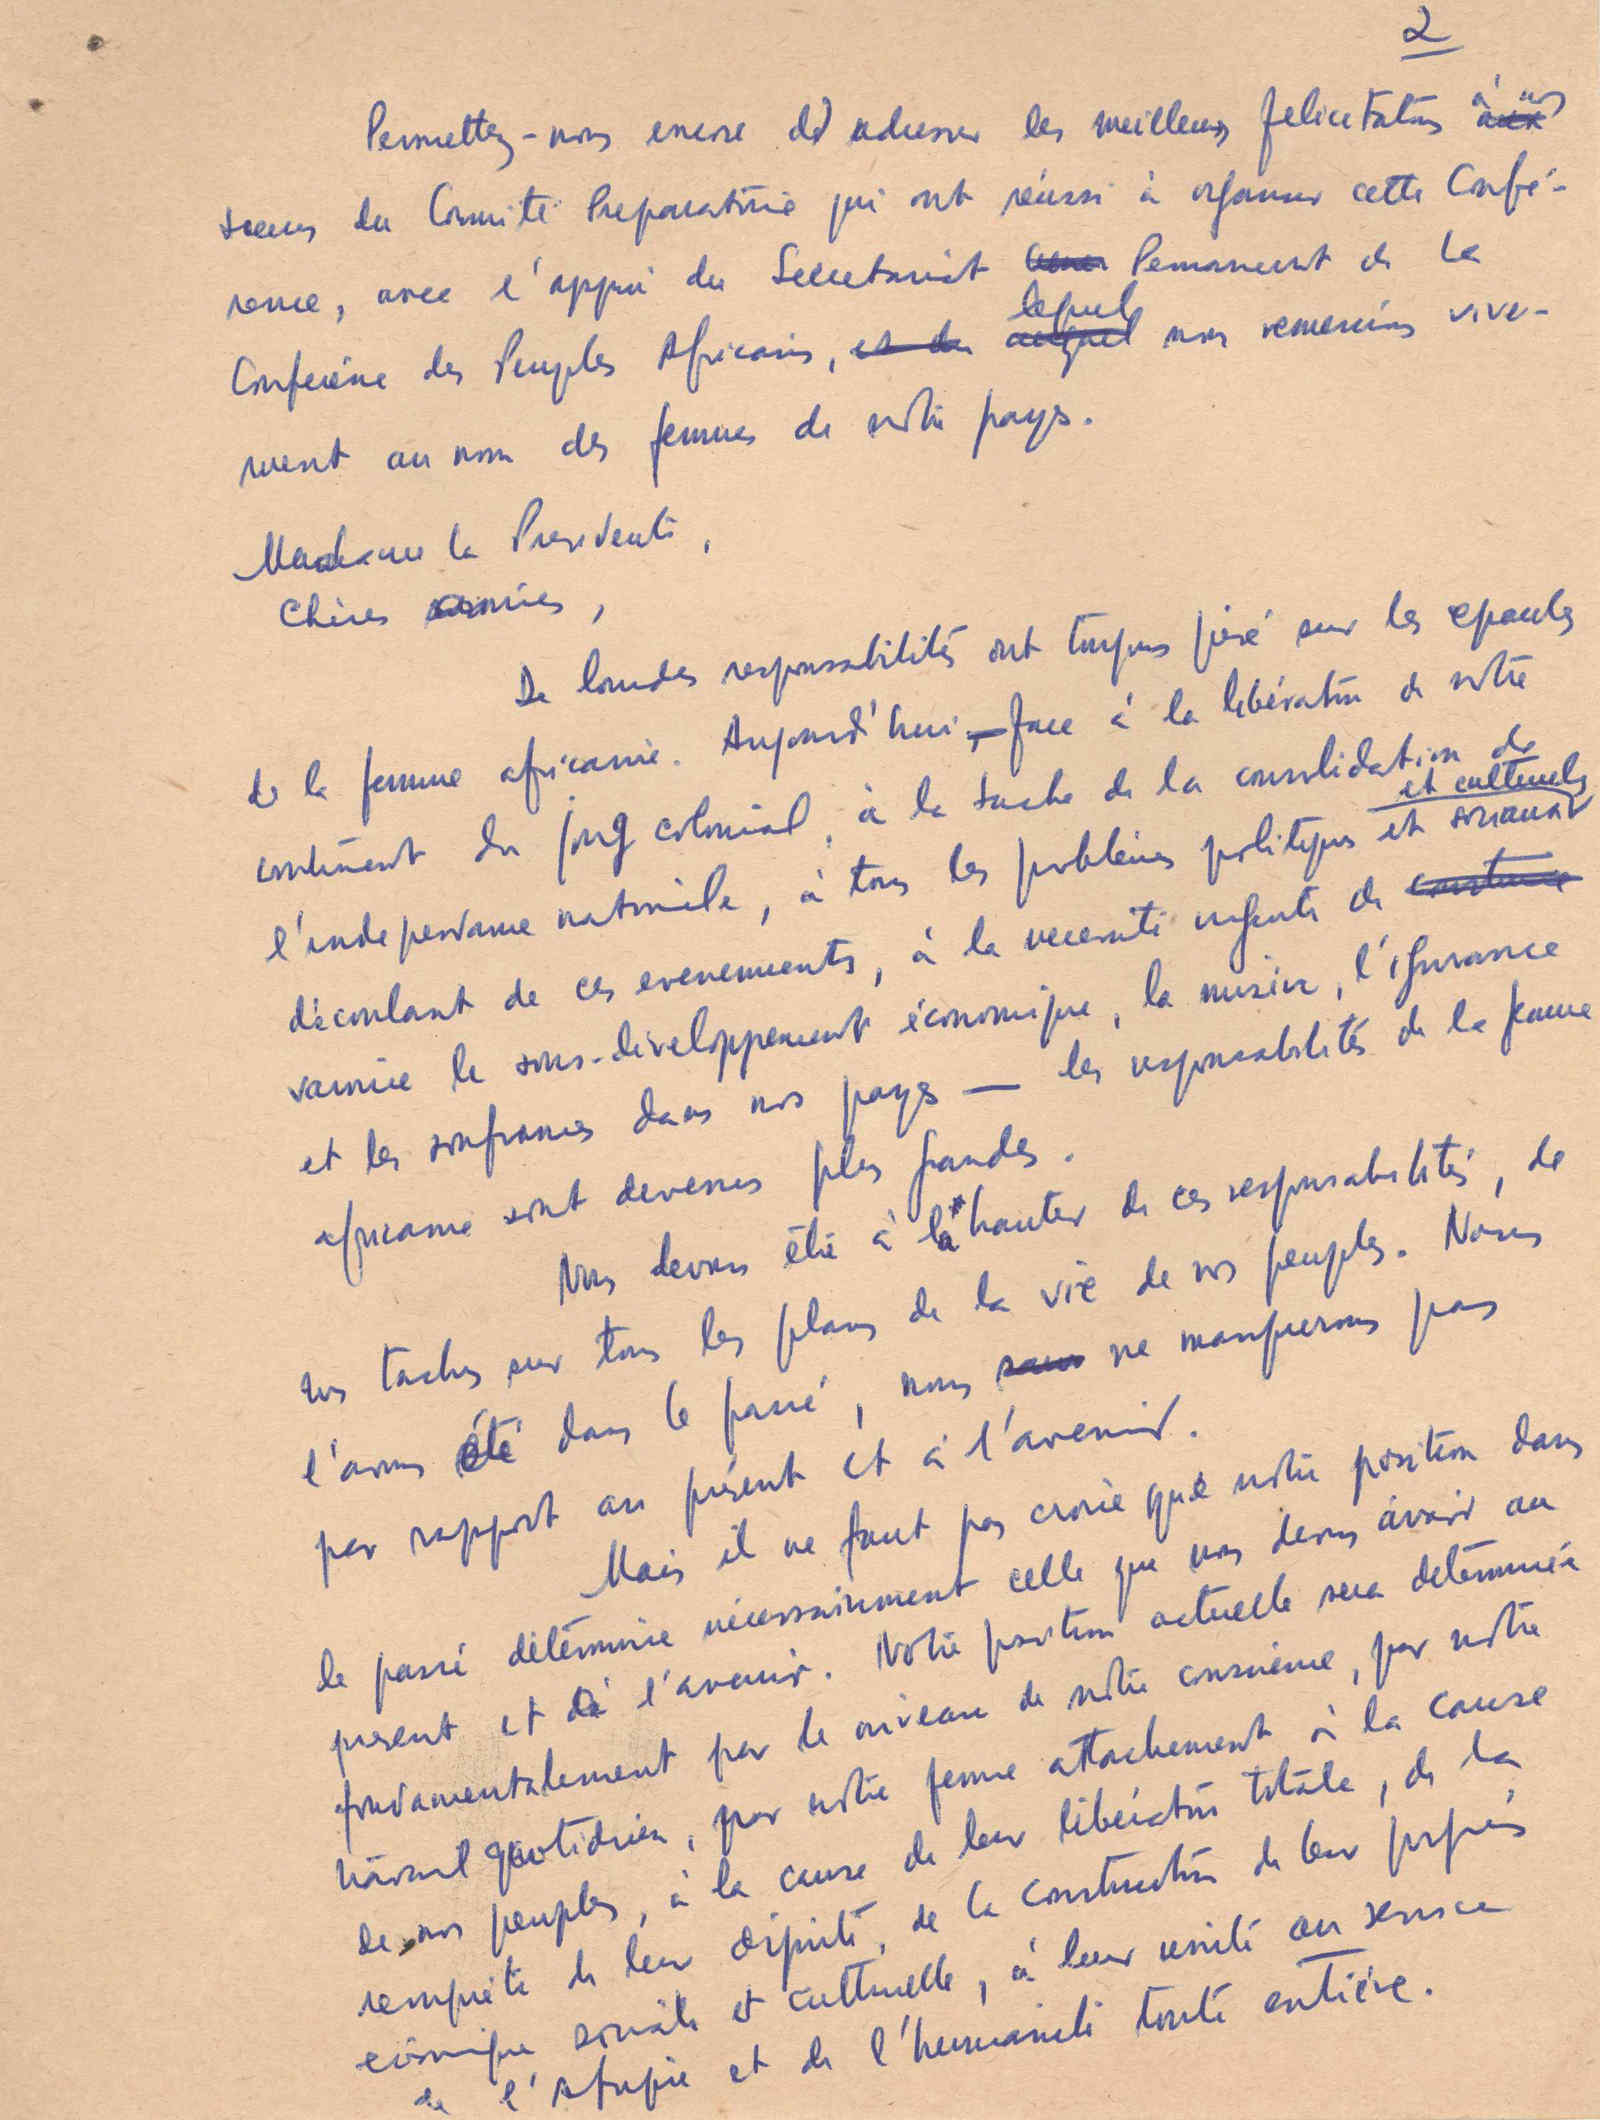 2
Permettez-nous encore d'adresser les meilleures felicitations à nos
sœurs du Comité Preparatoire qui ont réussi à organiser cette Confé-
rence, avec l'appui du Secretariat Permanent de la
Conference des Peuples Africains, lequel nous remercions vive-
ment au nom des femmes de notre pays.
Madame la Presidente,
Chères amies,
De lourdes responsabilités ont toujours pesé sur les epaules
de la femme africaine. Aujourd'hui, face à la libération de notre
continent du joug colonial, à la tache de la consolidation de
l'independance nationale, à tous les problèmes politiques et sociaux et culturels
découlant de ces evenements, à la necessité urgente de
vaincre le sous-développement économique, la misère, l'ignorance
et les souffrances dans nos pays — les responsabilités de la femme
africaine sont devenues plus grandes.
Nous devons être à la hauteur de ces responsabilités, de
nos taches sur tous les plans de la vie de nos peuples. Nous
l'avons été dans le passé, nous ne manquerons pas
par rapport au présent et à l'avenir.
Mais il ne faut pas croire que notre position dans
le passé détermine nécessairement celle que nous devons avoir au
present et à l'avenir. Notre position actuelle sera determinée
fondamentalement par le niveau de notre conscience, par notre
travail quotidien, par notre ferme attachement à la cause
de nos peuples, à la cause de leur libération totale, de la
reconquête de leur dignité, de la construction de leur progrès
economique sociale et culturelle, à leur unité au service
de l'Afrique et de l'humanité toute entière.